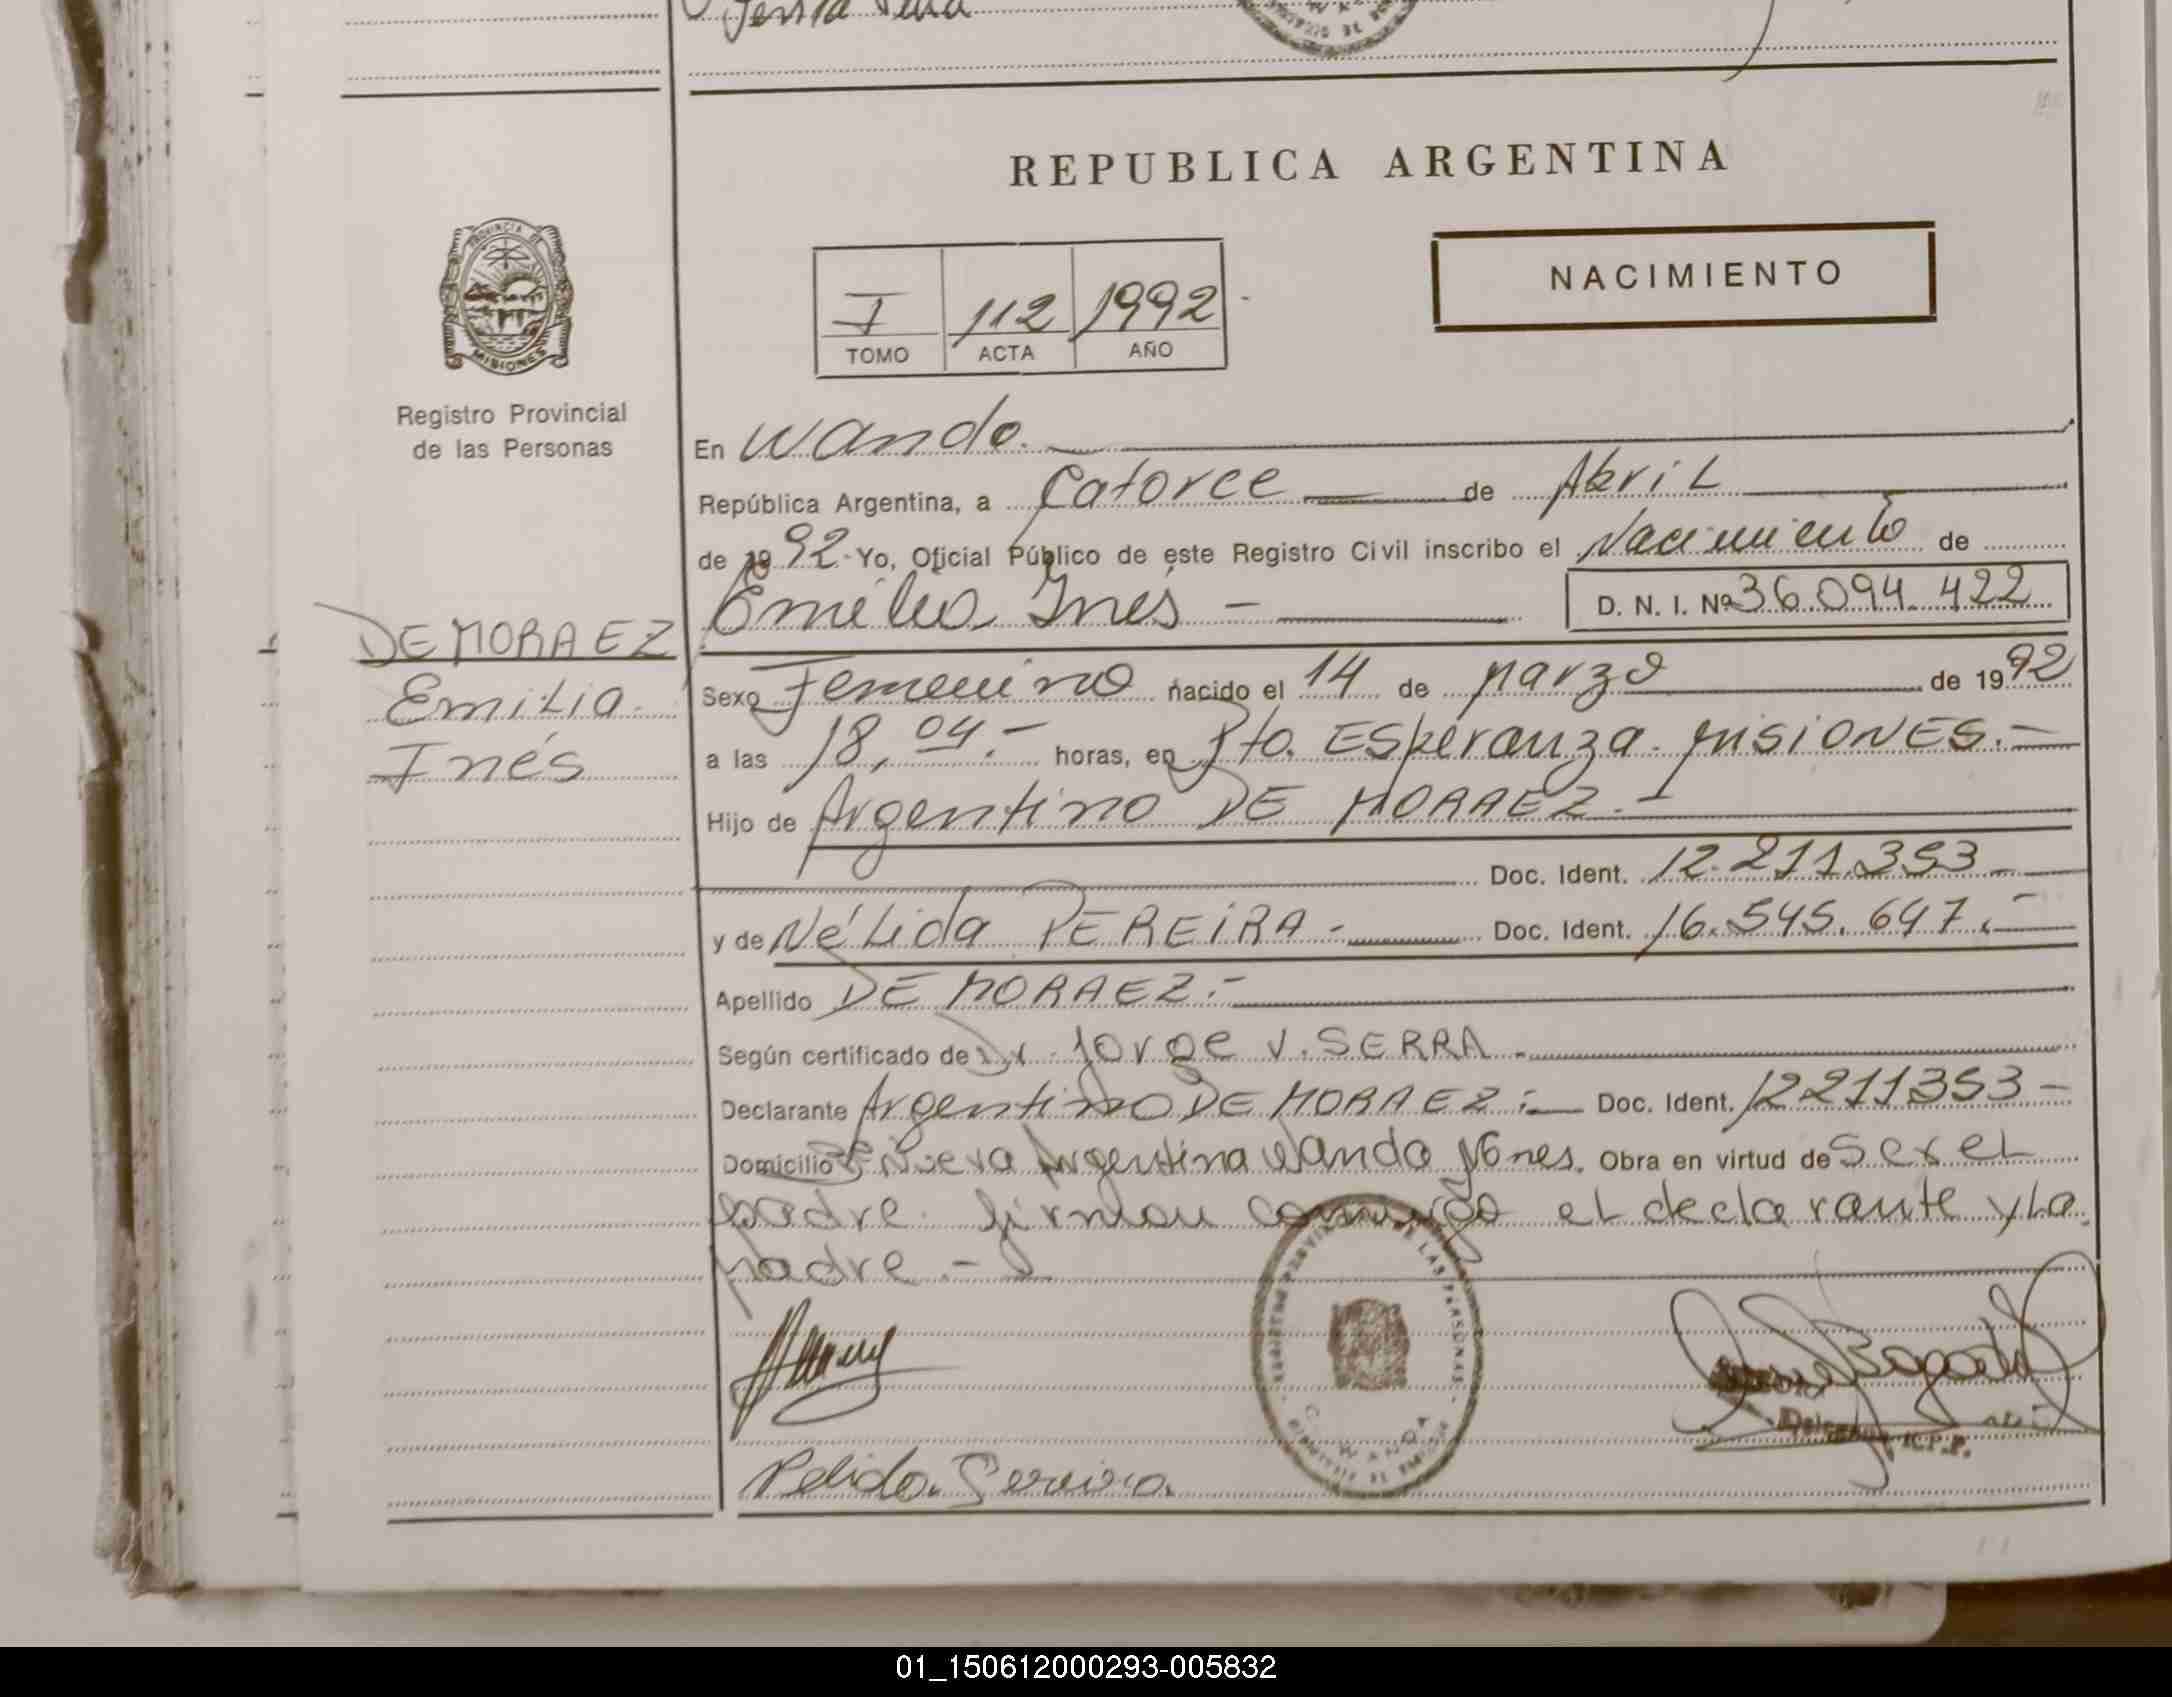 REPUBLICA ARGENTINA
PROVINCIA DE
MISIONES
NACIMIENTO
I 112 1992
TOMO ACTA AÑO
Registro Provincial
de las Personas
En Wanda.
República Argentina, a Catorce de Abril
de 1992.- Yo, Oficial Público de este Registro Civil inscribo el Nacimiento de
Emilia Inés - D. N. I. Nº 36.094.422
DE MORAEZ
Emilia
Inés
Sexo Femenino nacido el 14 de Marzo de 1992
a las 18,04.- horas, en Pto. Esperanza. MISIONES.-
Hijo de Argentino DE MORAEZ.-
Doc. Ident. 12.211.353-
y de Nélida PEREIRA- Doc. Ident. 16.545.647.-
Apellido DE MORAEZ.-
Según certificado de Dr. Jorge V. SERRA.
Declarante Argentino DE MORAEZ.- Doc. Ident. 12211353-
Domicilio Nueva Argentina Wanda Mnes. Obra en virtud de Ser el
padre. firman conmigo el declarante y la
madre.-
REGISTRO PROVINCIAL DE LAS PERSONAS
WANDA
Nelida Pereira
Delegada R.P.P.
01_150612000293-005832